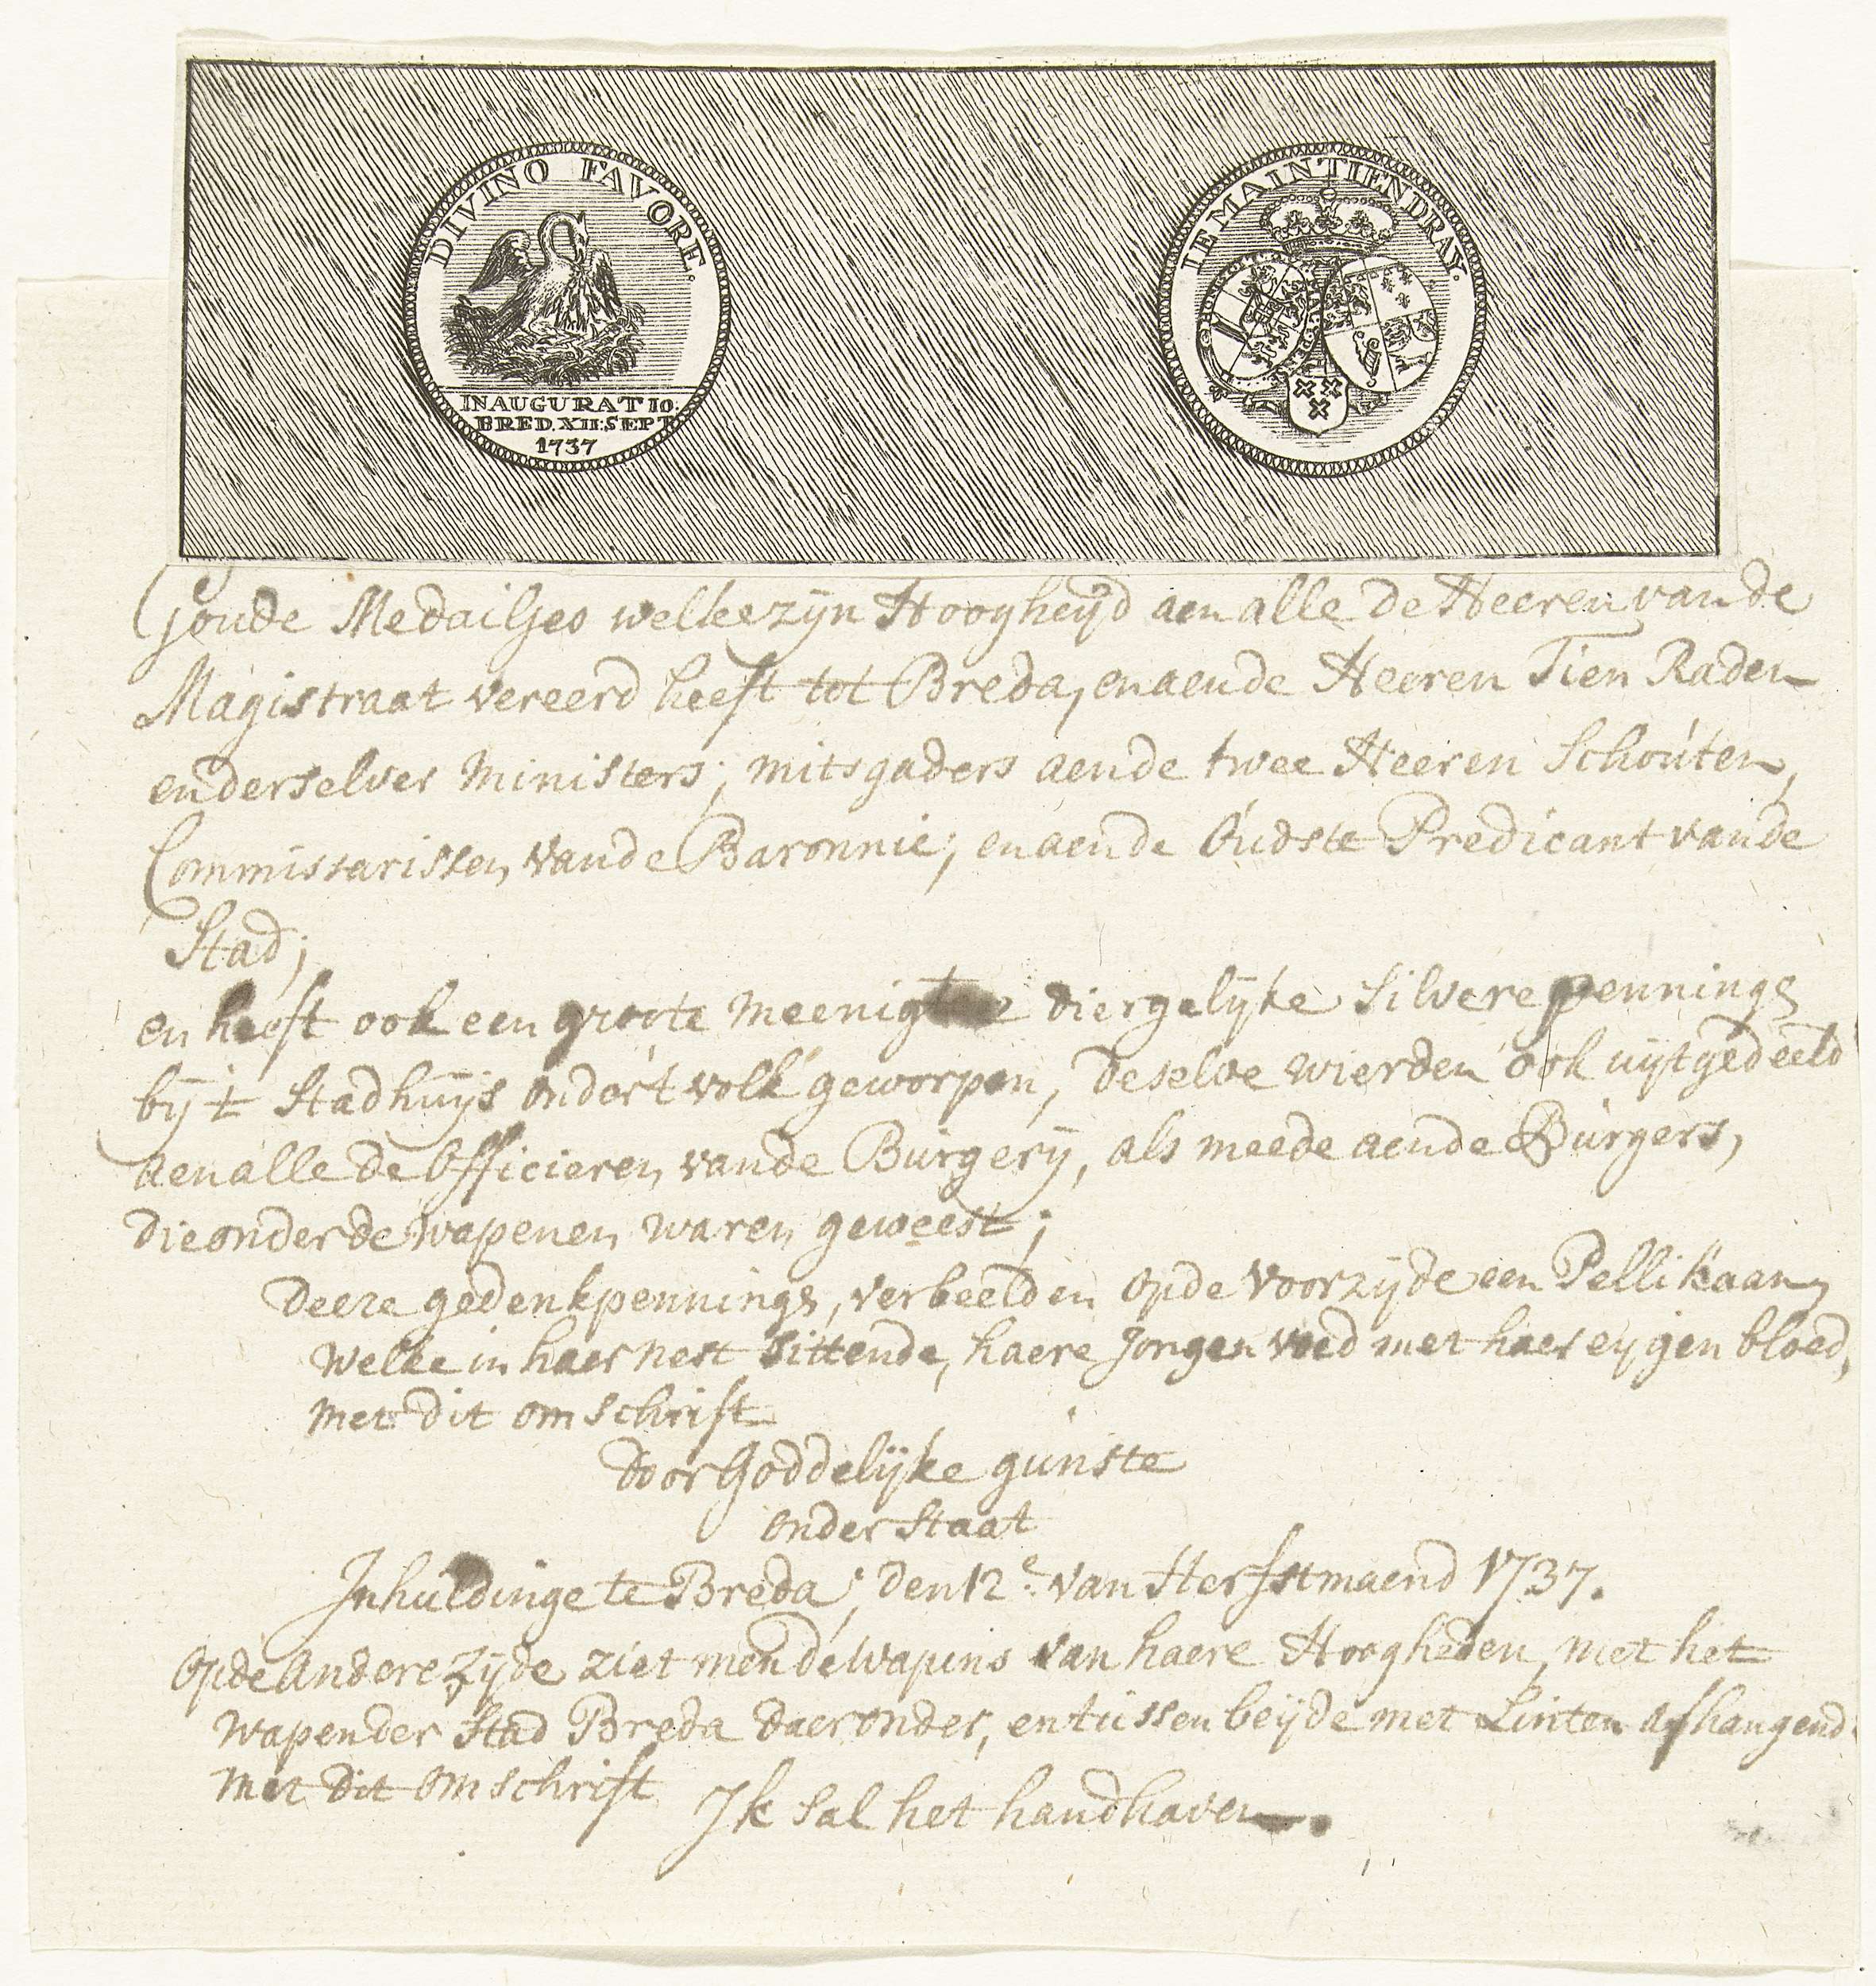 DIVINO FAVORE.
INAUGURATIO.
BRED. XII: SEPT
1737
IE MAINTIENDRAY.
Goude Medailjes welke zijn Hoogheijd aen alle de Heeren van de
Magistraat vereerd heeft tot Breda, en aen de Heeren Tien Raden
en derselver Ministers; mitsgaders aen de twee Heeren Schouten,
Commissarissen van de Baronnie; en aen de Oudste Predicant van de
Stad;
en heeft ook een groote meenigte diergelijke Silvere pennings
bij t Stadhuijs onder t volk geworpen, deselve wierden ook uijtgedeeld
aen alle de Officieren van de Burgerij, als meede aen de Burgers,
die onder de wapenen waren geweest;
Deeze gedenkpennings, verbeelden op de Voorzijde een Pellikaan,
welke in haer nest Sittende, haere Jongen voed met haer eijgen bloed,
met dit omschrift
Door Goddelijke gunste
onder Staat
Inhuldinge te Breda, den 12e. van Herfstmaend 1737.
Op de Andere zijde ziet men de Wapens van haere Hoogheden, met het
wapen der Stad Breda daeronder, en tussen beijde met Linten afhangend.
met dit omschrift Ik Sal het handhaven.